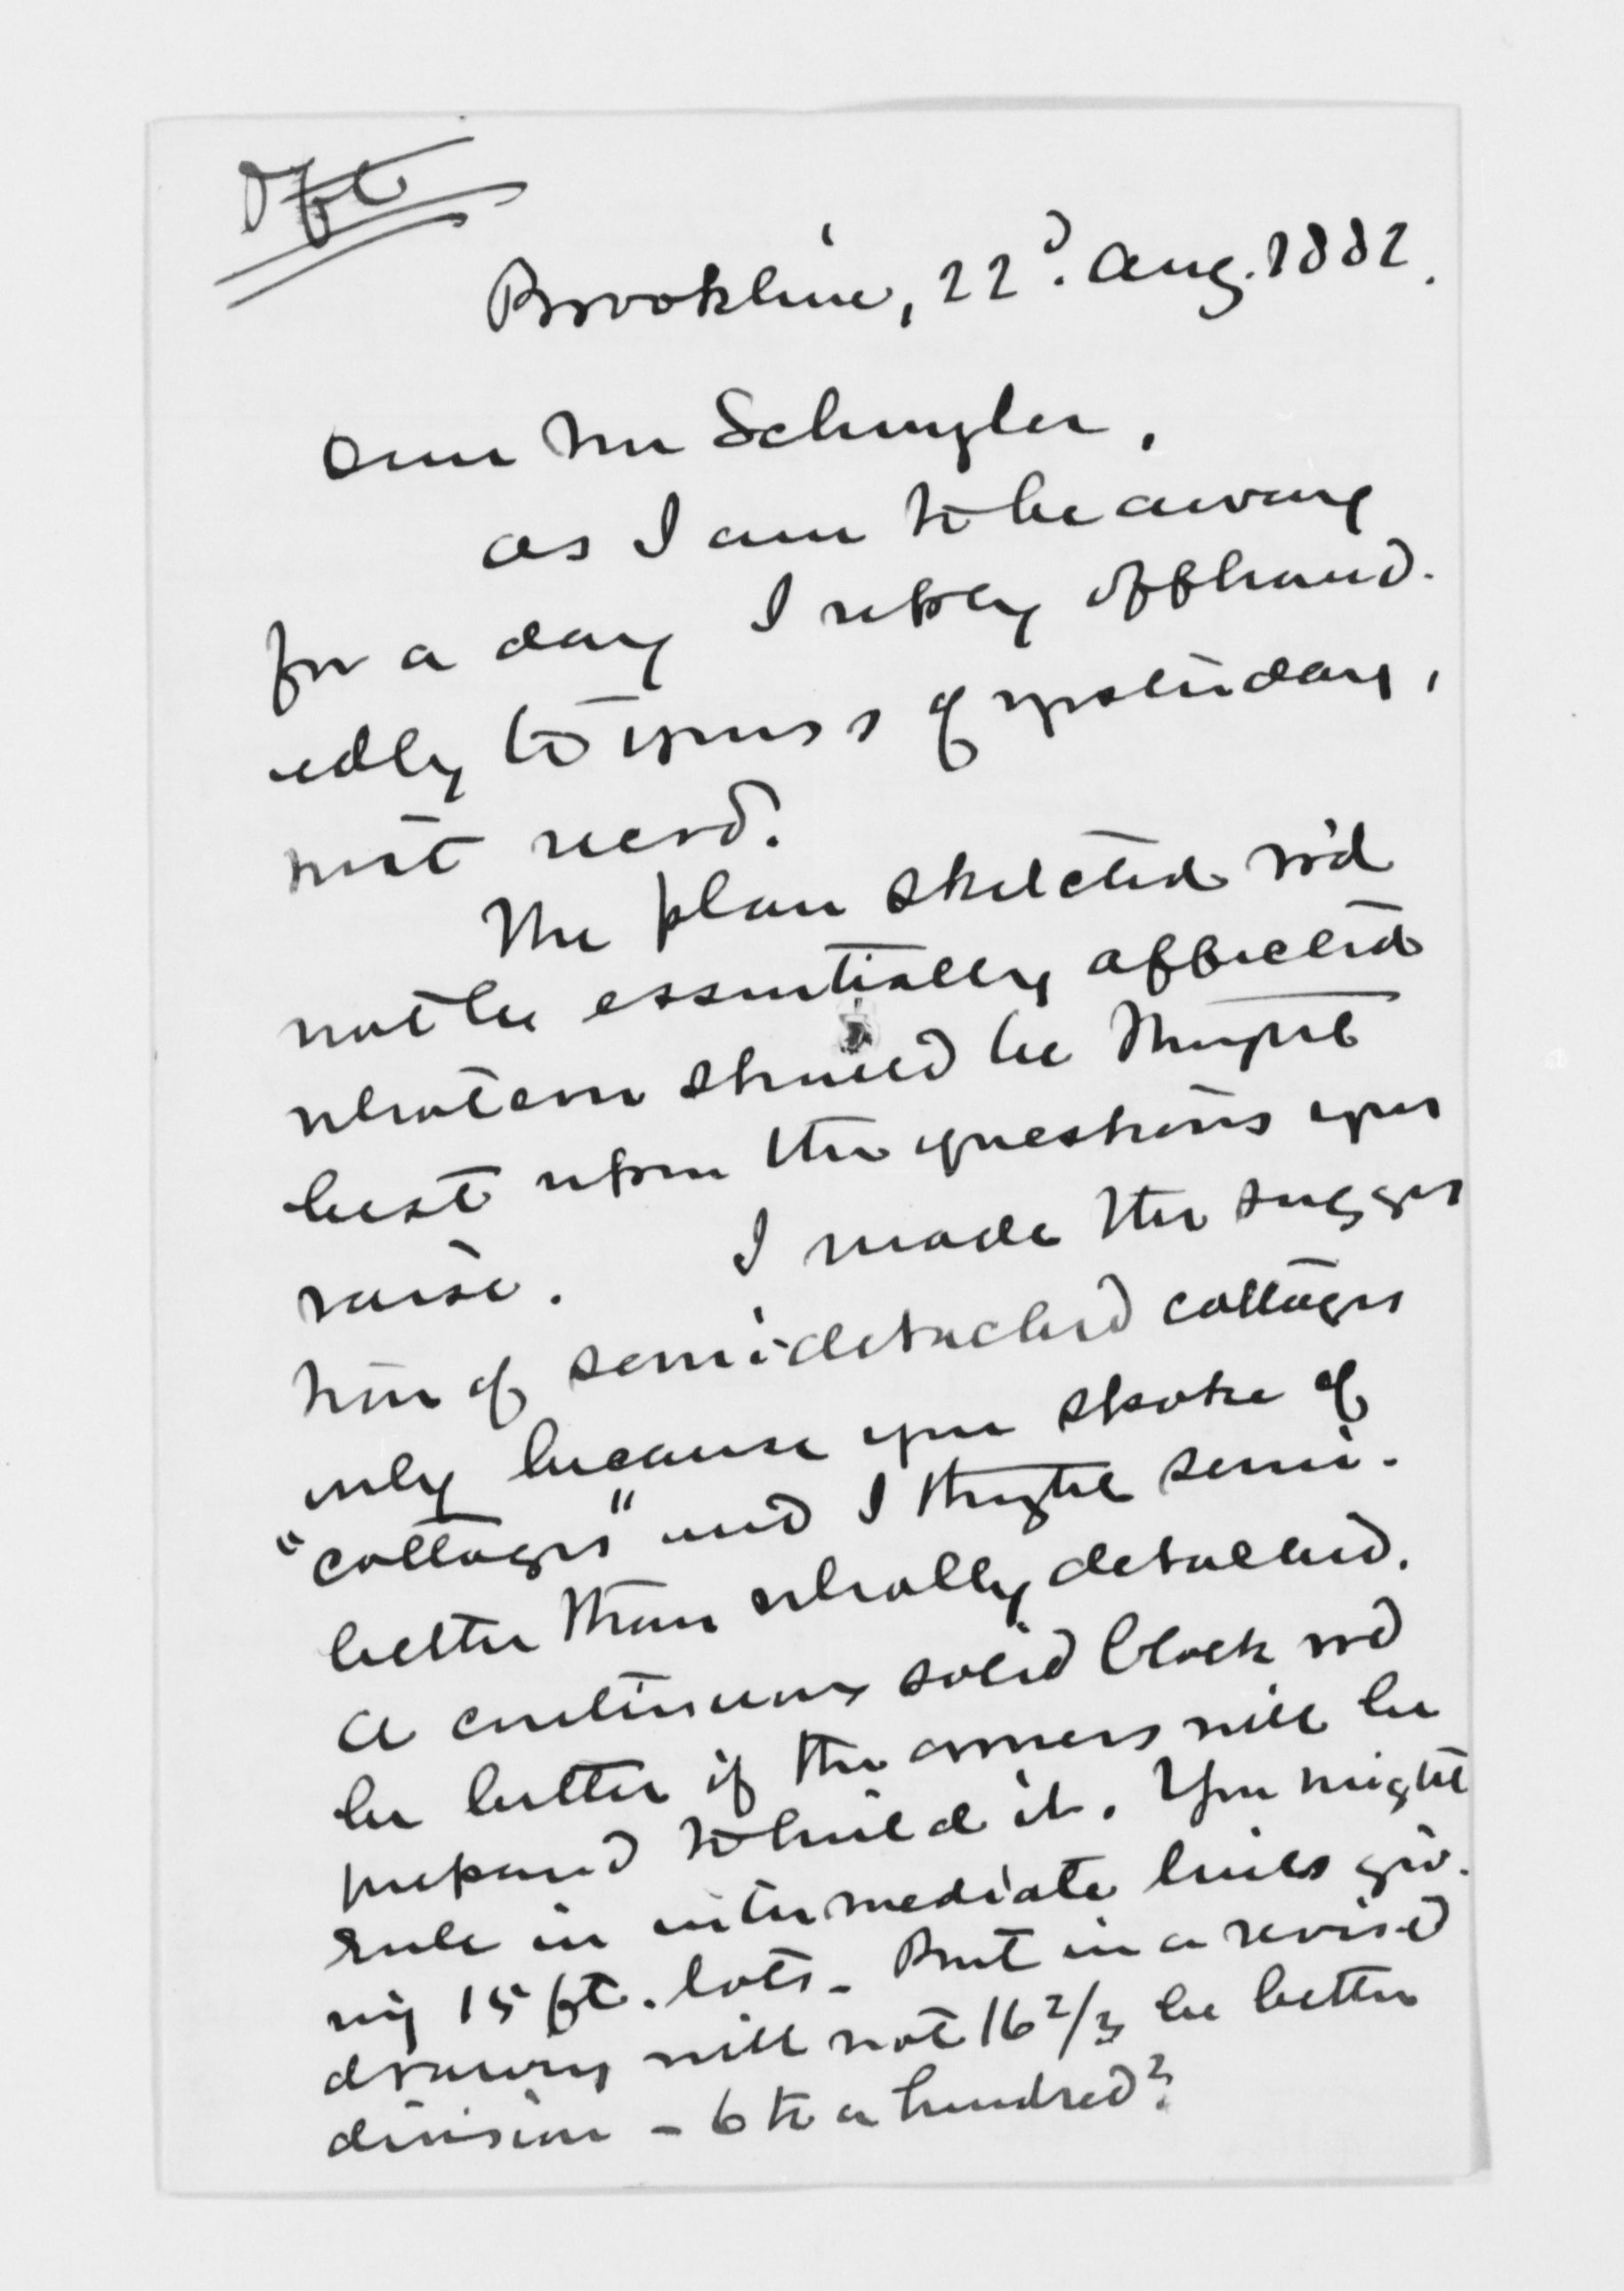 Dft
Brookline, 22d. Aug. 1882.
Dear Mr Schuyler,
As I am to be away
for a day I reply offhand-
edly to yours of yesterday,
just recvd.
The plan sketched w'd
not be essentially affected
whatever should be thought
best upon the questions you
raise. I made the sugges
tion of semi-detached cottages
only because you spoke of
"cottages" and I thought semi-
better than wholly detached.
A continuous solid block wd
be better if the owners will be
prepared to build it. You might
rule in intermediate lines giv-
ing 15 ft. lots - But in a revised
drawing will not 16 2/3 be better
division - 6 to a hundred?